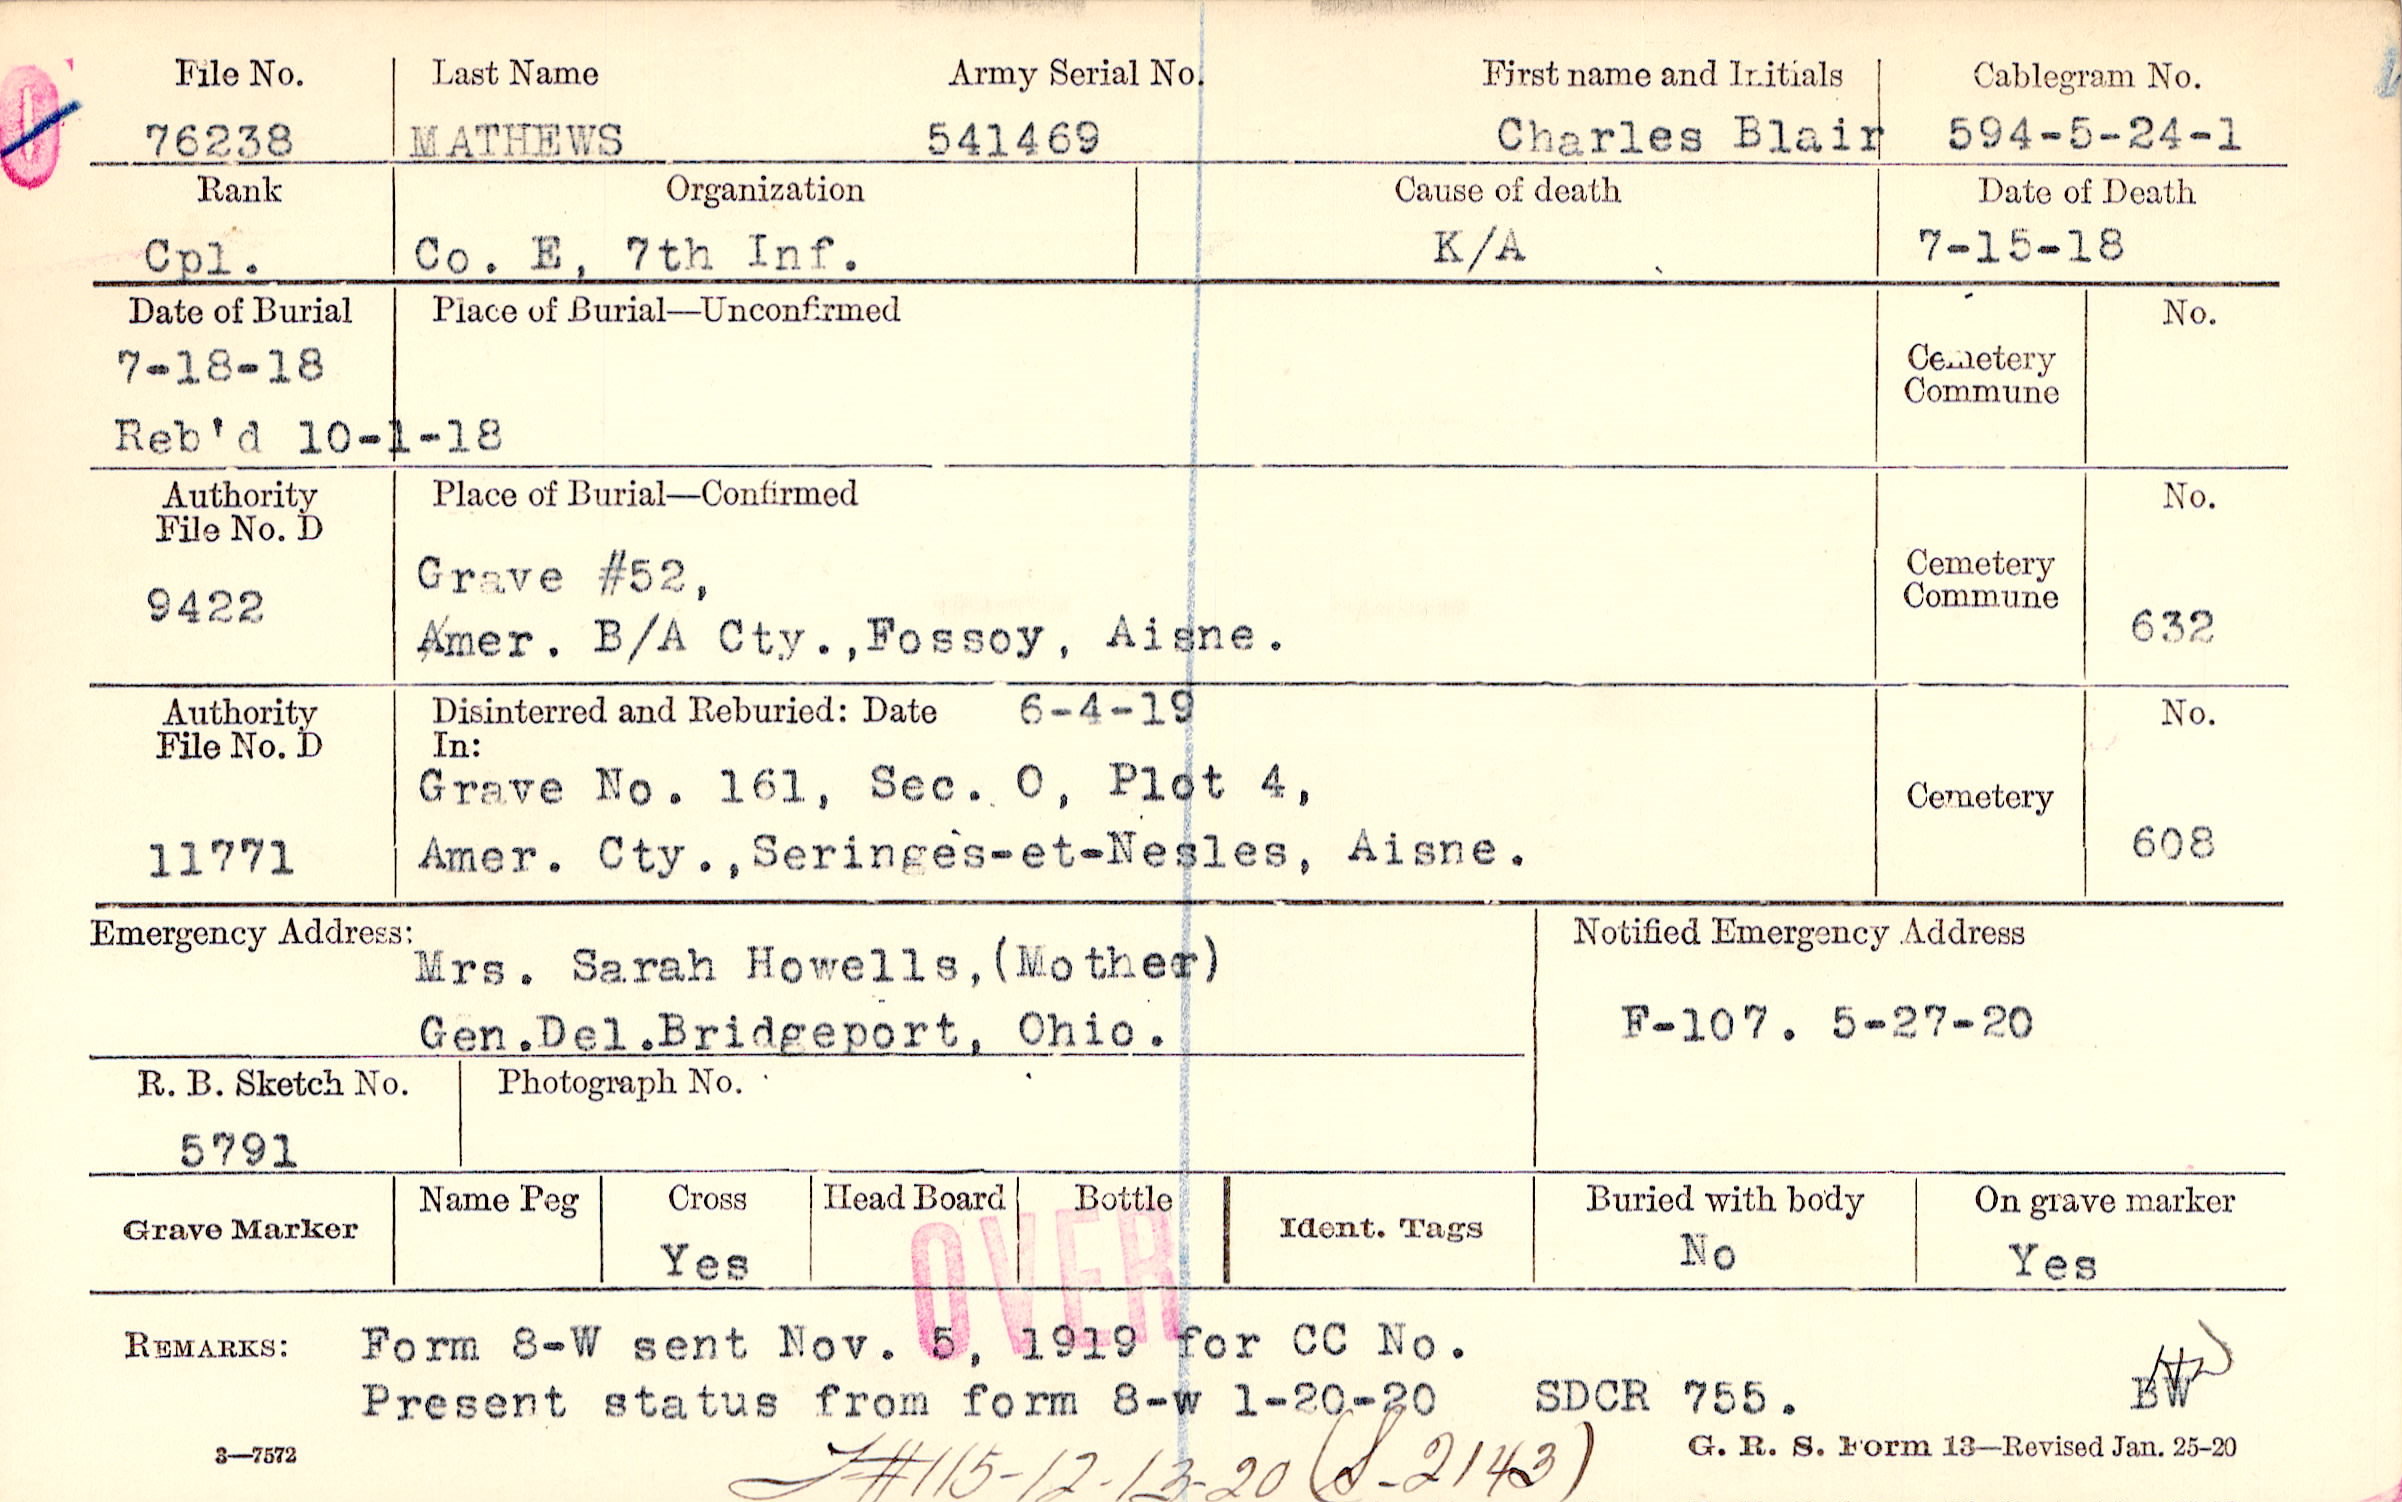 File No. Last Name Army Serial No. First name and Initials Cablegram No.
76238 MATHEWS 541469 Charles Blair 594-5-24-1
Rank Organization Cause of death Date of Death
Cpl. Co. E, 7th Inf. K/A 7-15-18
Date of Burial Place of Burial—Unconfirmed No.
7-18-18 Cemetery
Commune
Reb'd 10-1-18
Authority Place of Burial—Confirmed No.
File No. D
Grave #52, Cemetery
9422 Commune
Amer. B/A Cty.,Fossoy, Aisne. 632
Authority Disinterred and Reburied: Date 6-4-19 No.
File No. D In:
Grave No. 161, Sec. O, Plot 4, Cemetery
11771 Amer. Cty.,Seringes-et-Nesles, Aisne. 608
Emergency Address: Notified Emergency Address
Mrs. Sarah Howells,(Mother)
Gen.Del.Bridgeport, Ohio. F-107. 5-27-20
R. B. Sketch No. Photograph No.
5791
Grave Marker Name Peg Cross Head Board Bottle Ident. Tags Buried with body On grave marker
Yes No Yes
OVER
REMARKS: Form 8-W sent Nov. 5, 1919 for CC No.
Present status from form 8-w 1-20-20 SDCR 755. BW
3—7572 G. R. S. Form 13—Revised Jan. 25-20
#115-12-13-20 (S-2143)